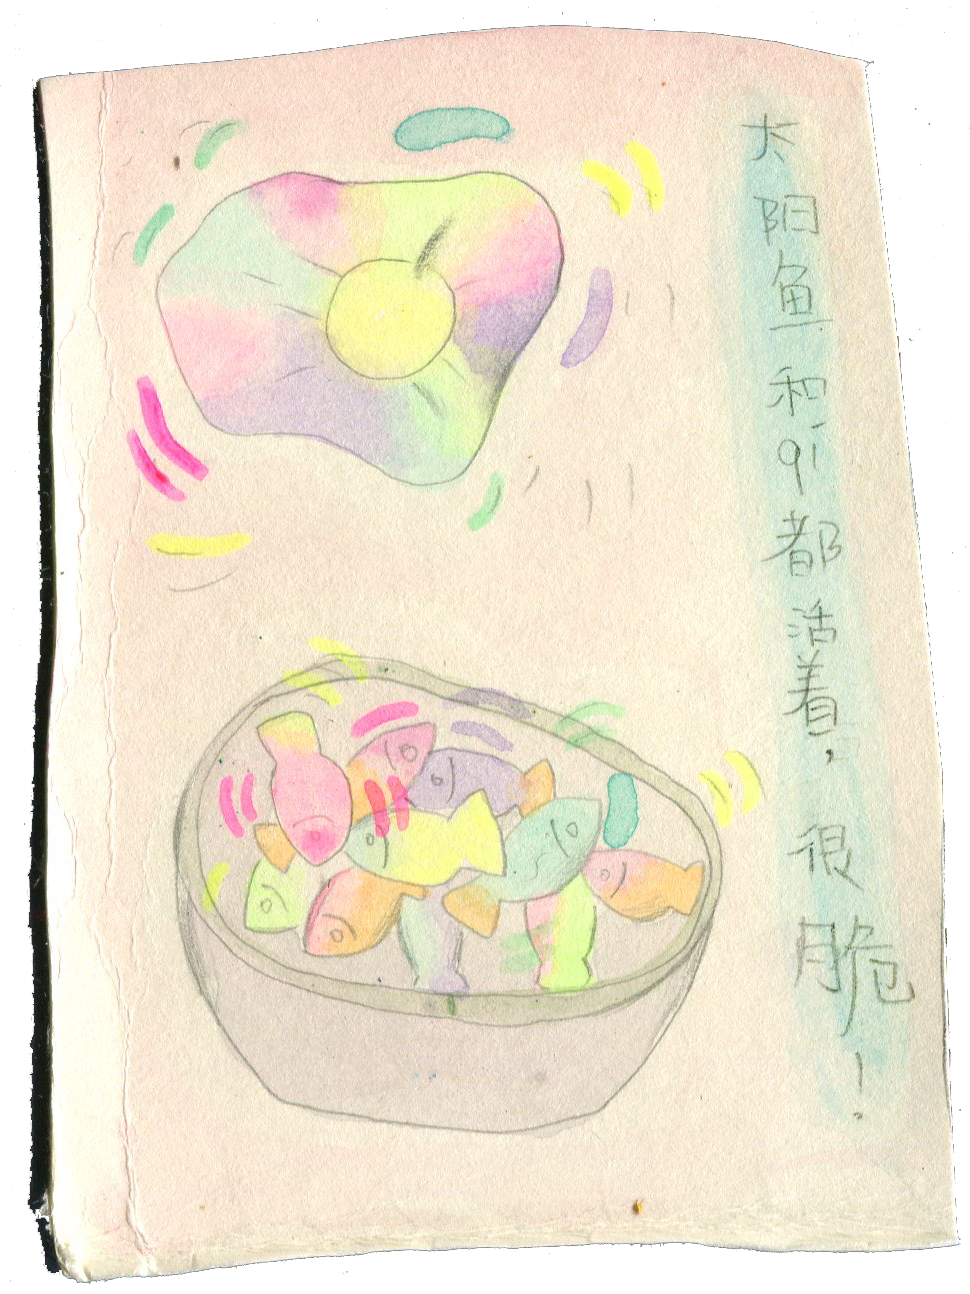 太阳鱼和qi都活着，很脆！